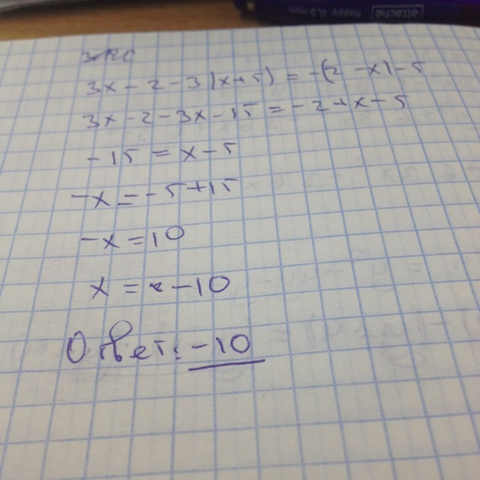 attache
Happy 0,5 mm
3x - 2 - 3(x+5) = -(2 - x) - 5
3x - 2 - 3x - 15 = -2 + x - 5
-15 = x - 5
-x = -5 + 15
-x = 10
x = -10
Ответ: -10